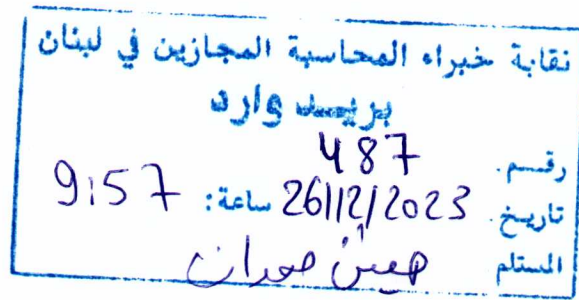 نقابة خبراء المحاسبة المجازين في لبنان
بريد وارد
رقم. 487
تاريخ. 26/12/2023 ساعة: 9:57
المستلم